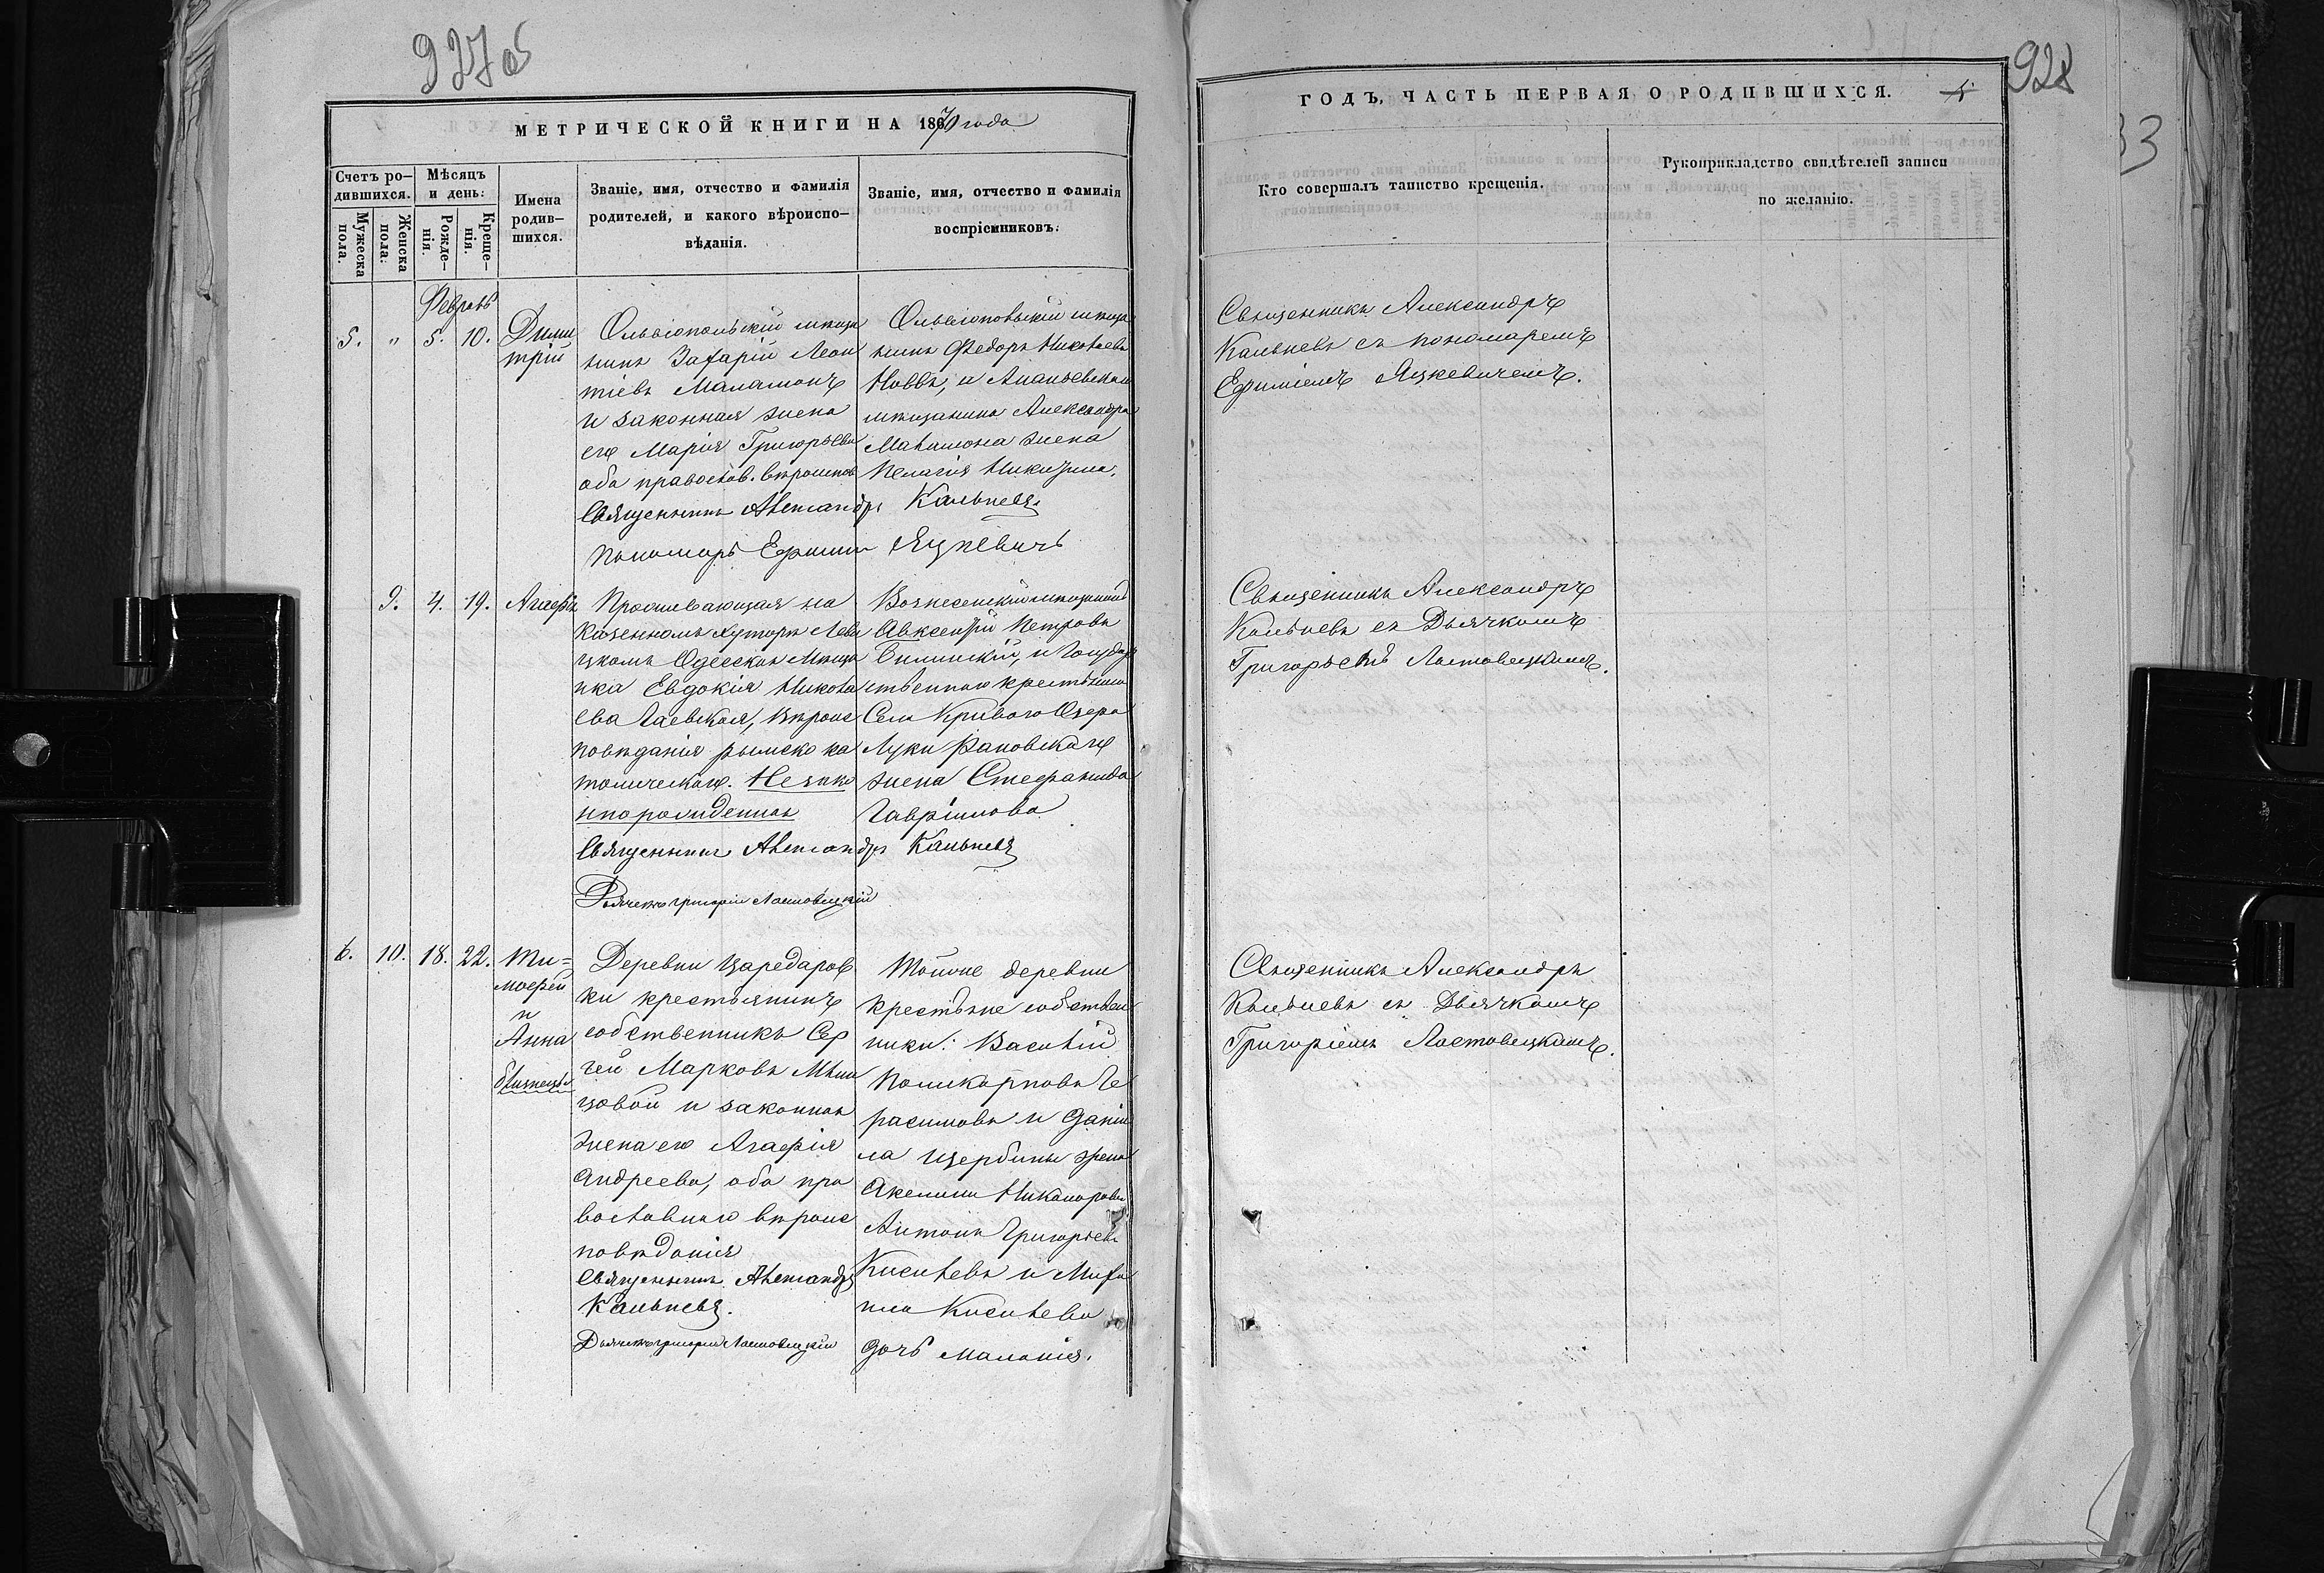 927 об
МЕТРИЧЕСКОЙ КНИГИ НА 1870 года
Счетъ ро-
дившихся.
Мужеска
пола.
Женска
пола.
Мѣсяцъ
и день:
Рожде-
нія.
Креще-
нія.
Имена
родив-
шихся.
Званіе, имя, отчество и фамилія
родителей, и какого вѣроиспо-
вѣданія.
Званіе, имя, отчество и фамилія
воспріемниковъ.
Февраль
5. " 5. 10.
Дими
трій
Ольвіопольскій мѣща
нинъ Захарій Леон
тіевъ Маламонъ
и законная жена
его Марія Григорьева
оба православ. вѣроиспов
Ольвіопольскій мѣща
нинъ Федоръ Николаевъ
и Ананьевскаго
мѣщанина Александра
Маламона жена
Пелагія Никитина.
Священникъ Александръ Кальневъ
Пономарь Ефимій Яцкевичъ
9. 4. 19.
Агафія
Проживающая на
казенномъ хуторѣ Леви
цкомъ Одесская Мѣща
нка Евдокія Никола
ева Гаевская, вѣроис
повѣданія римско ка
толическаго. Незако
ннорожденная
Вознесенскій мѣщанинъ
Авксентій Петровъ
Билинскій, и Государ
ственнаго крестьянина
Села Криваго Озера
Луки Рановскаго
жена Стефанида
Гавріилова
Священникъ Александръ Кальневъ
Дьячекъ Григорій Ластовецкій
6. 10. 18. 22.
Ти=
мофей
и
Анна
близнецы
Деревни Царедаров
ки крестьянинъ
собственникъ Сер
гей Марковъ
и законная
жена его Агафія
Андреева, оба пра
вославнаго вѣроис
повѣданія
Священникъ Александръ
Кальневъ.
Дьячекъ Григорій Ластовецкій
Тойже деревни
крестьяне собствен
ники: Василій
Поликарповъ Ге
расимовъ и Дании
ла Щербины жена
Акелина Никанорова
Антонъ Григорьевъ
Киселевъ и Миха
ила Киселева
дочь Маланія.
ГОДЪ, ЧАСТЬ ПЕРВАЯ О РОДИВШИХСЯ.
928
33
Кто совершалъ таинство крещенія.
Рукоприкладство свидѣтелей записи
по желанію.
Священникъ Александръ
Кальневъ съ пономаремъ
Ефиміемъ Яцкевичемъ.
Священникъ Александръ
Кальневъ съ Дьячкомъ
Григорьемъ Ластовецкимъ.
Священникъ Александръ
Кальневъ съ Дьячкомъ
Григоріемъ Ластовецкимъ.